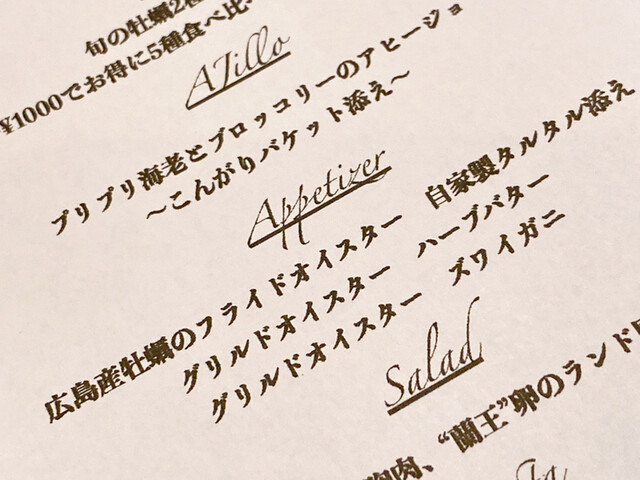 旬の牡蠣2種
¥1000でお得に5種食べ比
AJillo
プリプリ海老とブロッコリーのアヒージョ
〜こんがりバケット添え〜
Appetizer
広島産牡蠣のフライドオイスター 自家製タルタル添え
グリルドオイスター ハーブバター
グリルドオイスター ズワイガニ
Salad
胸肉、“蘭王”卵のランド